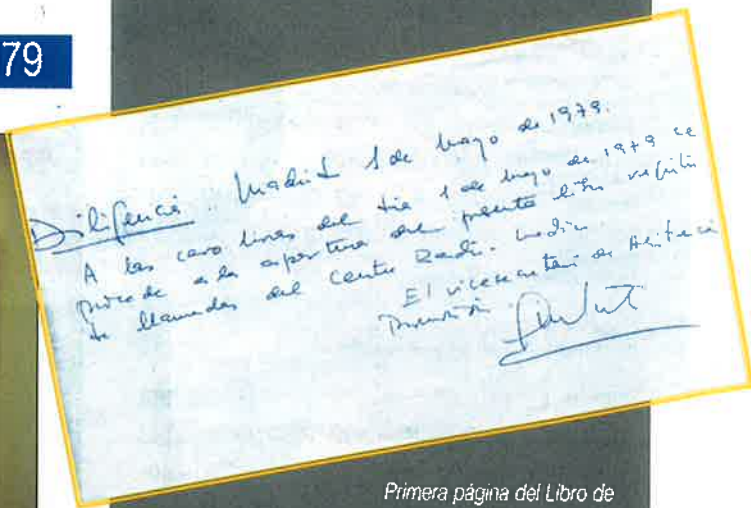 79
Diligencia. Madrid 1 de Mayo de 1979.
A las cero horas del día 1 de Mayo de 1979 se
procede a la apertura del presente libro registro
de llamadas del Centro Radio-Médico.
El vicesecretario de Asistencia
Primera página del Libro de